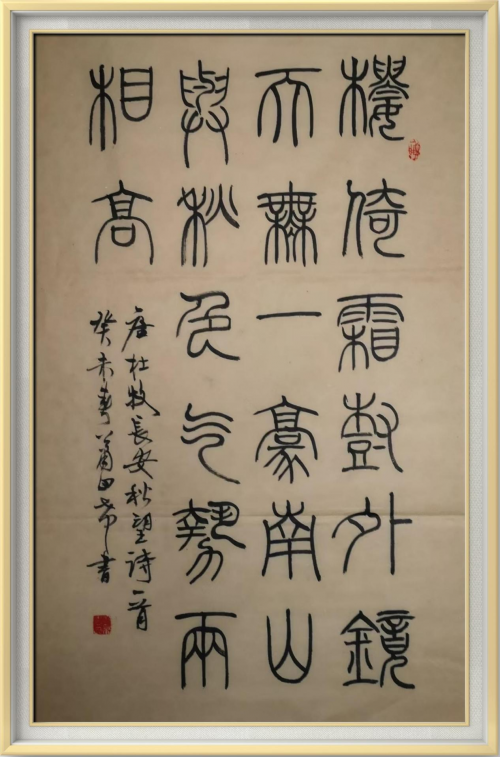 樓倚霜樹外鏡
天無一豪南山
與秋色气勢兩
相高
唐杜牧長安秋望詩一首
癸未春莆田書